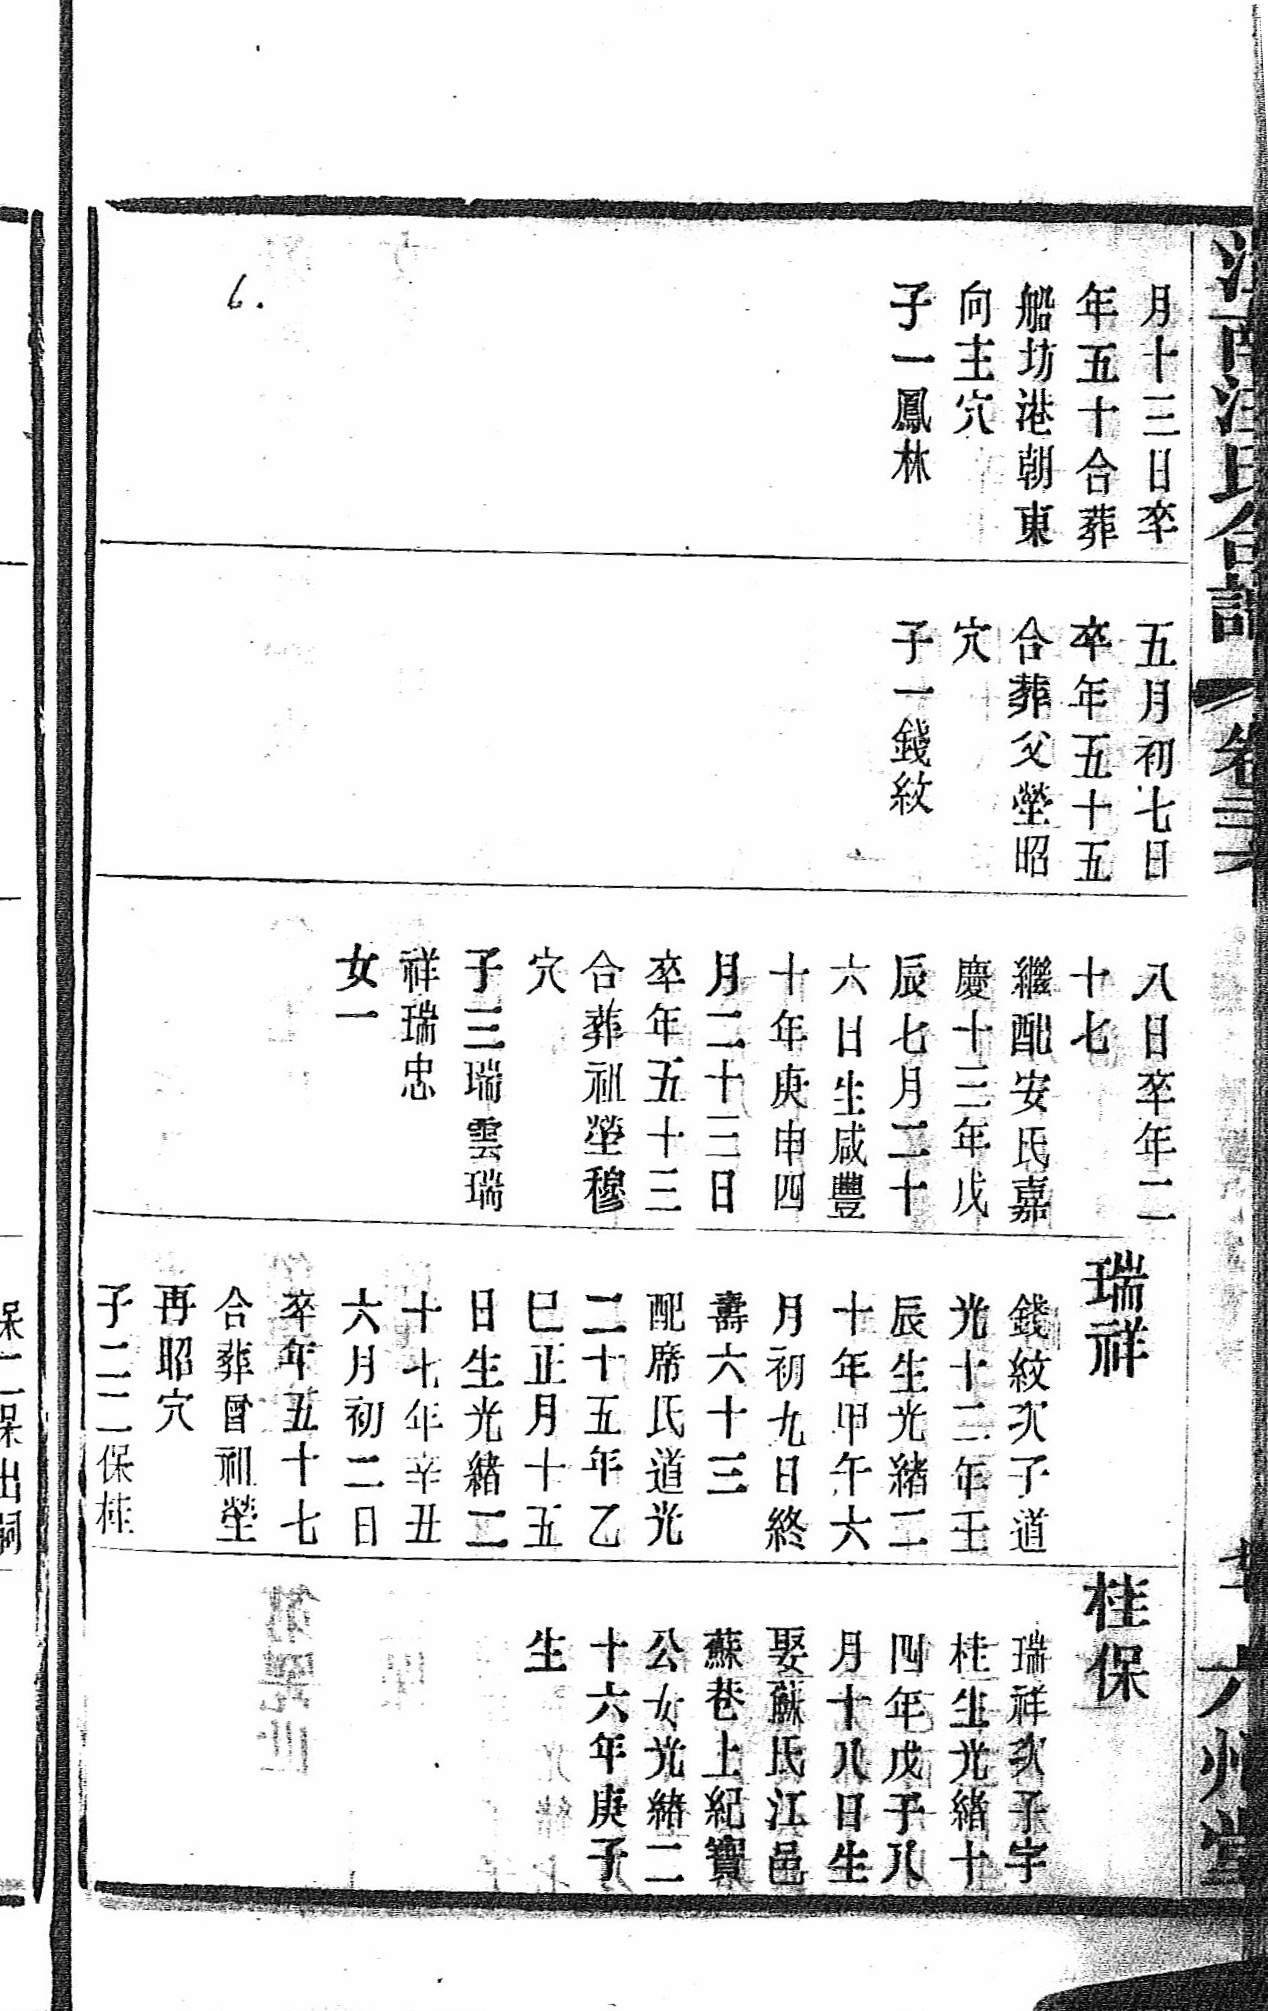 月十三日卒
年五十合葬
船坊港朝東
向主穴
子一鳳林
五月初七日
卒年五十五
合葬父塋昭
穴
子一錢紋
八日卒年二
十七
繼配安氏嘉
慶十三年戊
辰七月二十
六日生咸豐
十年庚申四
月二十三日
卒年五十三
合葬祖塋穆
穴
子三瑞雲瑞
祥瑞忠
女一
瑞祥
錢紋次子道
光十二年壬
辰生光緒二
十年甲午六
月初九日終
壽六十三
配席氏道光
二十五年乙
巳正月十五
日生光緒二
十七年辛丑
六月初二日
卒年五十七
合葬曾祖塋
再昭穴
子二二保桂
桂保
瑞祥次子字
桂生光緒十
四年戊子八
月十八日生
娶蘇氏江邑
蘇巷上紀寶
公女光緒二
十六年庚子
生
氏合譜
卷
六州堂
保二保出嗣
6.